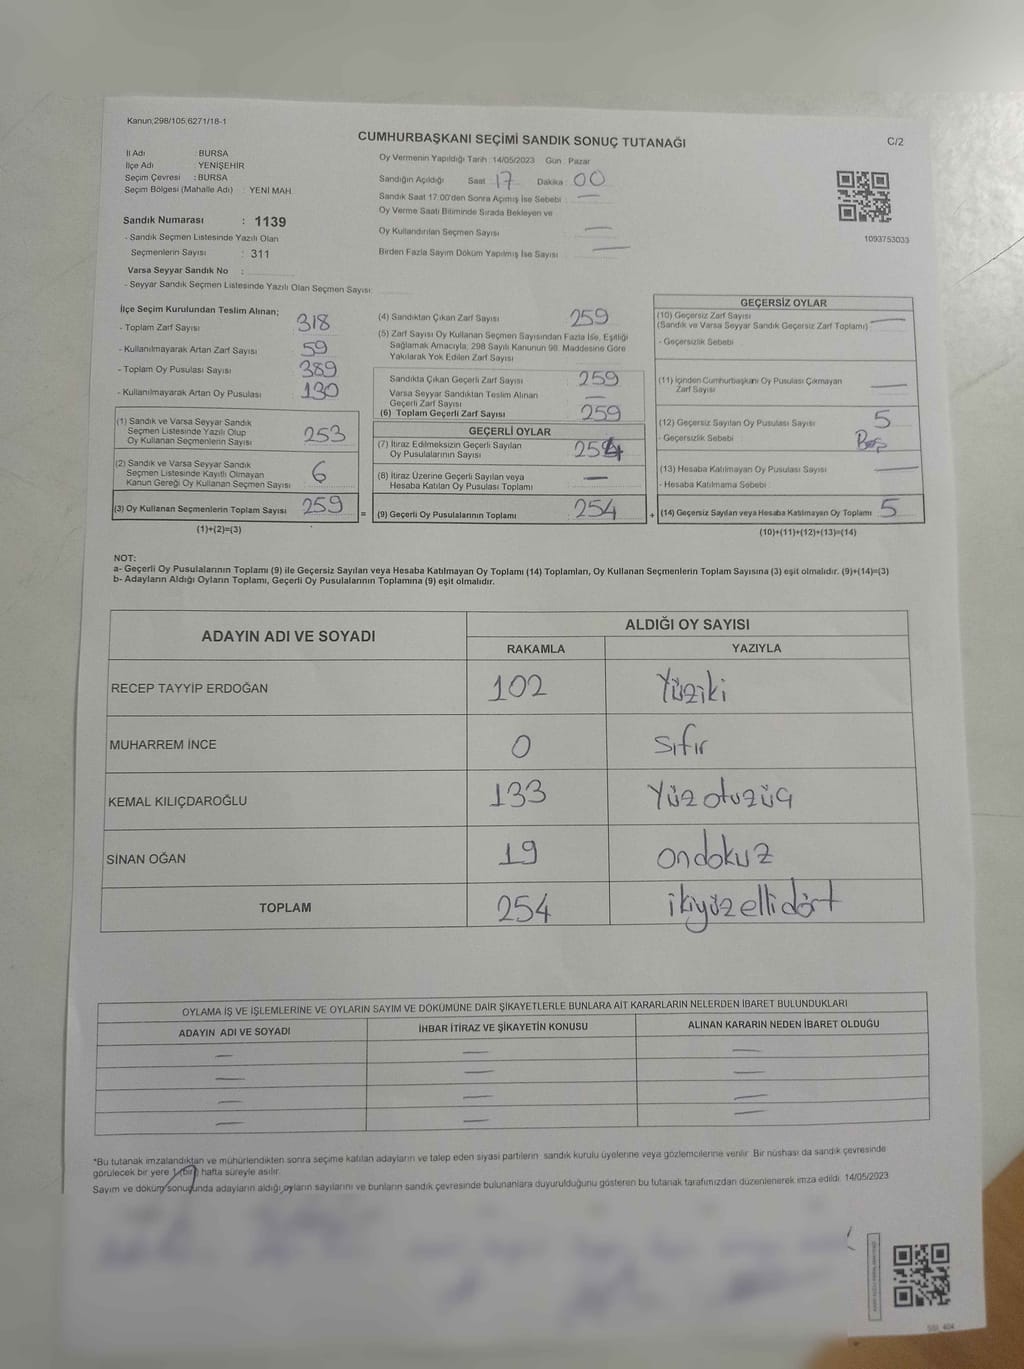 Kanun;298/105;6271/18-1
CUMHURBAŞKANI SEÇİMİ SANDIK SONUÇ TUTANAĞI
C/2
İl Adı : BURSA
İlçe Adı : YENİŞEHİR
Seçim Çevresi : BURSA
Seçim Bölgesi (Mahalle Adı) : YENİ MAH.
Sandık Numarası : 1139
- Sandık Seçmen Listesinde Yazılı Olan
Seçmenlerin Sayısı : 311
Varsa Seyyar Sandık No :
- Seyyar Sandık Seçmen Listesinde Yazılı Olan Seçmen Sayısı:
Oy Vermenin Yapıldığı Tarih : 14/05/2023 Gün : Pazar
Sandığın Açıldığı Saat : 17 Dakika : 00
Sandık Saat 17:00'den Sonra Açımış İse Sebebi : —
Oy Verme Saati Bitiminde Sırada Bekleyen ve
Oy Kullandırılan Seçmen Sayısı —
Birden Fazla Sayım Döküm Yapılmış İse Sayısı —
1093753033
İlçe Seçim Kurulundan Teslim Alınan;
- Toplam Zarf Sayısı 318
- Kullanılmayarak Artan Zarf Sayısı 59
- Toplam Oy Pusulası Sayısı 389
- Kullanılmayarak Artan Oy Pusulası 130
(1) Sandık ve Varsa Seyyar Sandık
Seçmen Listesinde Yazılı Olup
Oy Kullanan Seçmenlerin Sayısı 253
(2) Sandık ve Varsa Seyyar Sandık
Seçmen Listesinde Kayıtlı Olmayan
Kanun Gereği Oy Kullanan Seçmen Sayısı 6
(3) Oy Kullanan Seçmenlerin Toplam Sayısı 259
(1)+(2)=(3)
(4) Sandıktan Çıkan Zarf Sayısı 259
(5) Zarf Sayısı Oy Kullanan Seçmen Sayısından Fazla İse, Eşitliği
Sağlamak Amacıyla, 298 Sayılı Kanunun 98. Maddesine Göre
Yakılarak Yok Edilen Zarf Sayısı
Sandıkta Çıkan Geçerli Zarf Sayısı 259
Varsa Seyyar Sandıktan Teslim Alınan
Geçerli Zarf Sayısı —
(6) Toplam Geçerli Zarf Sayısı 259
GEÇERLİ OYLAR
(7) İtiraz Edilmeksizin Geçerli Sayılan
Oy Pusulalarının Sayısı 254
(8) İtiraz Üzerine Geçerli Sayılan veya
Hesaba Katılan Oy Pusulası Toplamı —
= (9) Geçerli Oy Pusulalarının Toplamı 254
GEÇERSİZ OYLAR
(10) Geçersiz Zarf Sayısı
(Sandık ve Varsa Seyyar Sandık Geçersiz Zarf Toplamı) —
- Geçersizlik Sebebi
(11) İçinden Cumhurbaşkanı Oy Pusulası Çıkmayan
Zarf Sayısı —
(12) Geçersiz Sayılan Oy Pusulası Sayısı 5
- Geçersizlik Sebebi
(13) Hesaba Katılmayan Oy Pusulası Sayısı —
- Hesaba Katılmama Sebebi
+ (14) Geçersiz Sayılan veya Hesaba Katılmayan Oy Toplamı 5
(10)+(11)+(12)+(13)=(14)
NOT:
a- Geçerli Oy Pusulalarının Toplamı (9) ile Geçersiz Sayılan veya Hesaba Katılmayan Oy Toplamı (14) Toplamları, Oy Kullanan Seçmenlerin Toplam Sayısına (3) eşit olmalıdır. (9)+(14)=(3)
b- Adayların Aldığı Oyların Toplamı, Geçerli Oy Pusulalarının Toplamına (9) eşit olmalıdır.
ADAYIN ADI VE SOYADI
ALDIĞI OY SAYISI
RAKAMLA YAZIYLA
RECEP TAYYİP ERDOĞAN 102 Yüziki
MUHARREM İNCE 0 sıfır
KEMAL KILIÇDAROĞLU 133 Yüzotuzüç
SİNAN OĞAN 19 ondokuz
TOPLAM 254 ikiyüzellidört
OYLAMA İŞ VE İŞLEMLERİNE VE OYLARIN SAYIM VE DÖKÜMÜNE DAİR ŞİKAYETLERLE BUNLARA AİT KARARLARIN NELERDEN İBARET BULUNDUKLARI
ADAYIN ADI VE SOYADI İHBAR İTİRAZ VE ŞİKAYETİN KONUSU ALINAN KARARIN NEDEN İBARET OLDUĞU
— — —
— — —
— — —
— — —
*Bu tutanak imzalandıktan ve mühürlendikten sonra seçime katılan adayların ve talep eden siyasi partilerin sandık kurulu üyelerine veya gözlemcilerine verilir. Bir nüshası da sandık çevresinde
görülecek bir yere 1 (bir) hafta süreyle asılır.
Sayım ve döküm sonucunda adayların aldığı oyların sayılarını ve bunların sandık çevresinde bulunanlara duyurulduğunu gösteren bu tutanak tarafımızdan düzenlenerek imza edildi. 14/05/2023